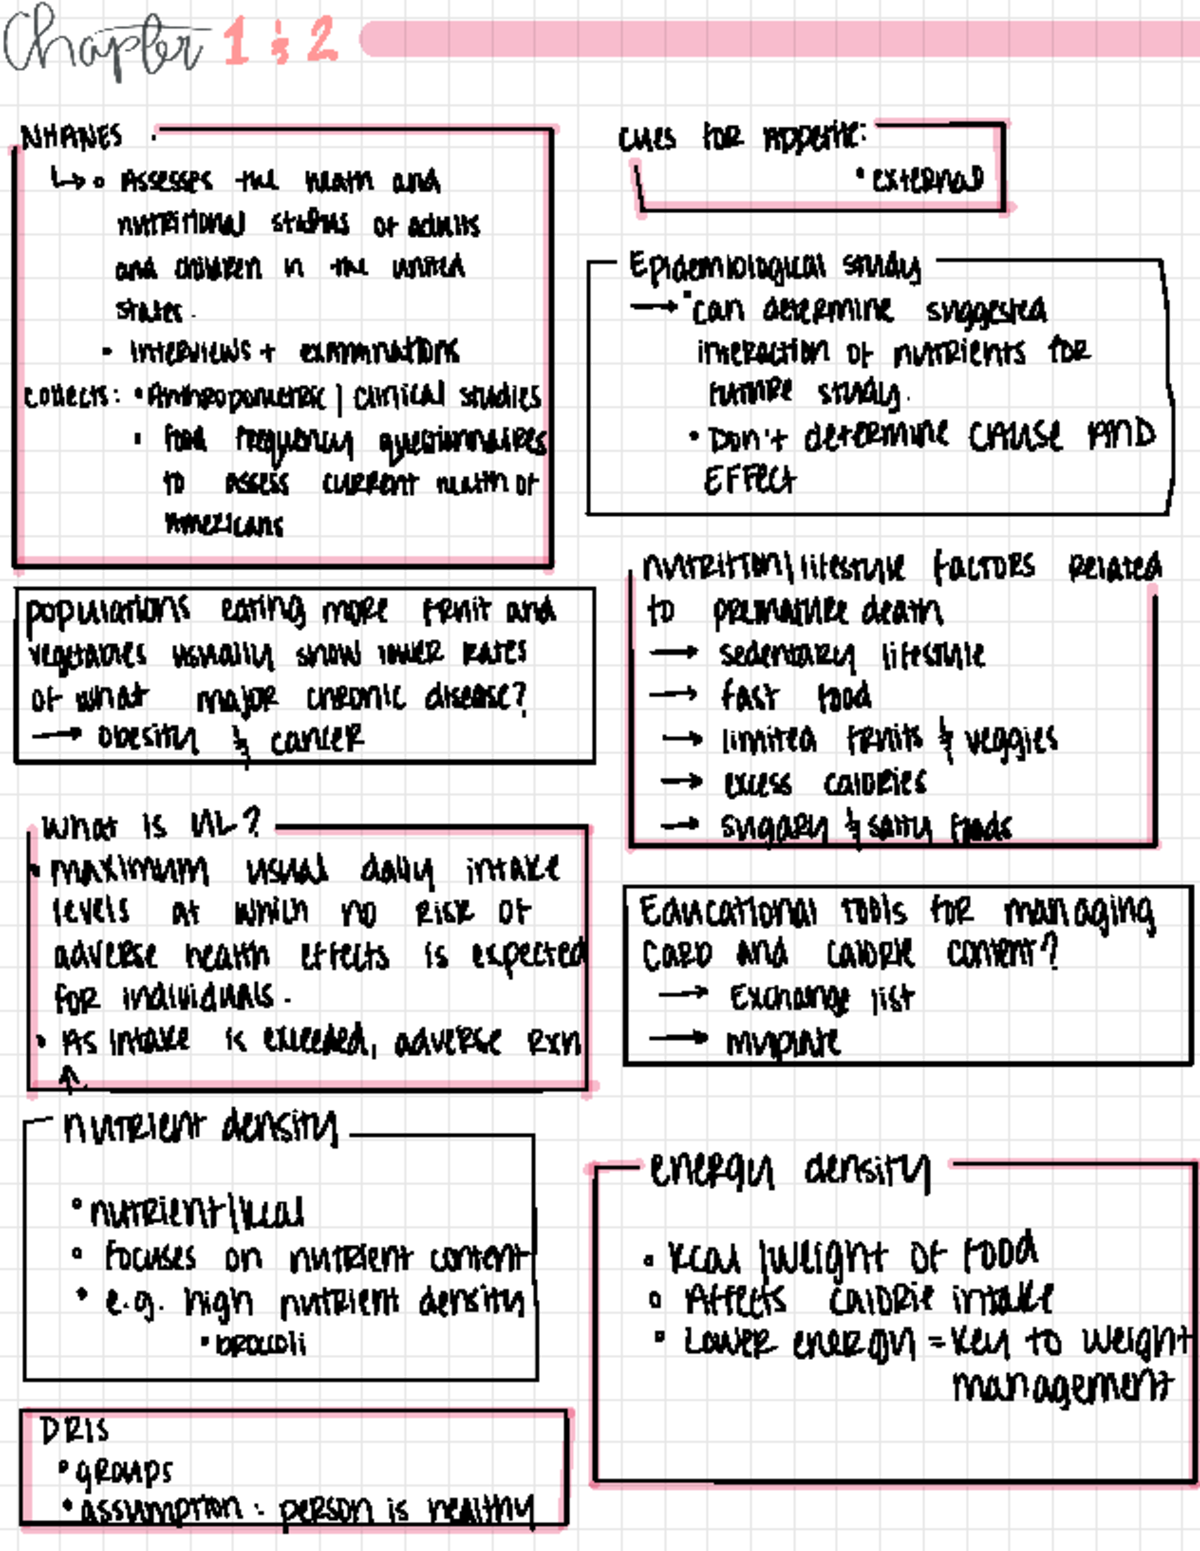 Chapter 1 & 2
NHANES
↳ • Assesses the health and
nutritional status of adults
and children in the united
states.
• Interviews + examinations
collects: • Anthropometric | clinical studies
• food frequency questionnaires
to assess current health of
Americans
populations eating more fruit and
vegetables usually show lower rates
of what major chronic disease?
→ obesity & cancer
What is UL?
• maximum usual daily intake
levels at which no risk of
adverse health effects is expected
for individuals.
• As intake is exceeded, adverse rxn
↑
nutrient density
• nutrient/kcal
• focuses on nutrient content
• e.g. high nutrient density
• broccoli
DRIS
• groups
• assumption: person is healthy
cues for appetite:
• external
Epidemiological study
→ • can determine suggested
interaction of nutrients for
future study.
• Don't determine CAUSE AND
EFFECT
nutrition/lifestyle factors related
to premature death
→ sedentary lifestyle
→ fast food
→ limited fruits & veggies
→ excess calories
→ sugary & salty foods
Educational tools for managing
carb and calorie content?
→ Exchange list
→ myplate
energy density
• kcal/weight of food
• Affects calorie intake
• Lower energy = key to weight
management